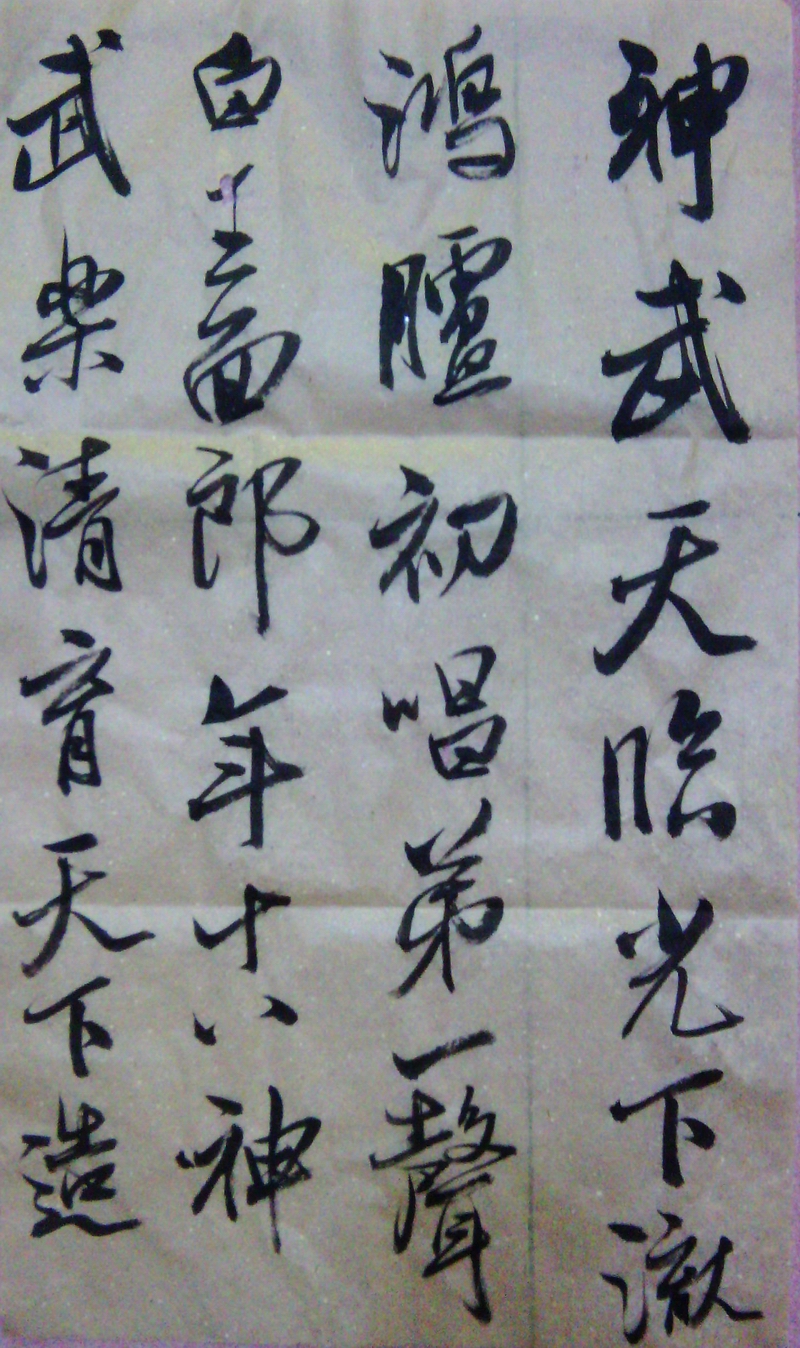 神武天臨光下澈
鴻臚初唱弟一聲
白面郎年十八神
武樂清育天下造